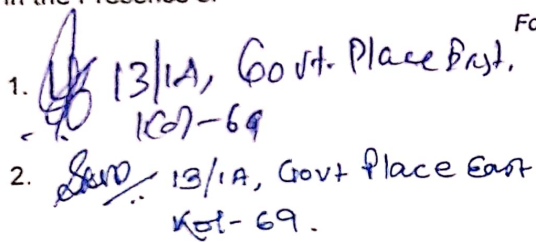 in the Presence of
Fo
1. 13/1A, Govt. Place East,
Kol-69
2. 13/1A, Govt Place East
Kol-69.